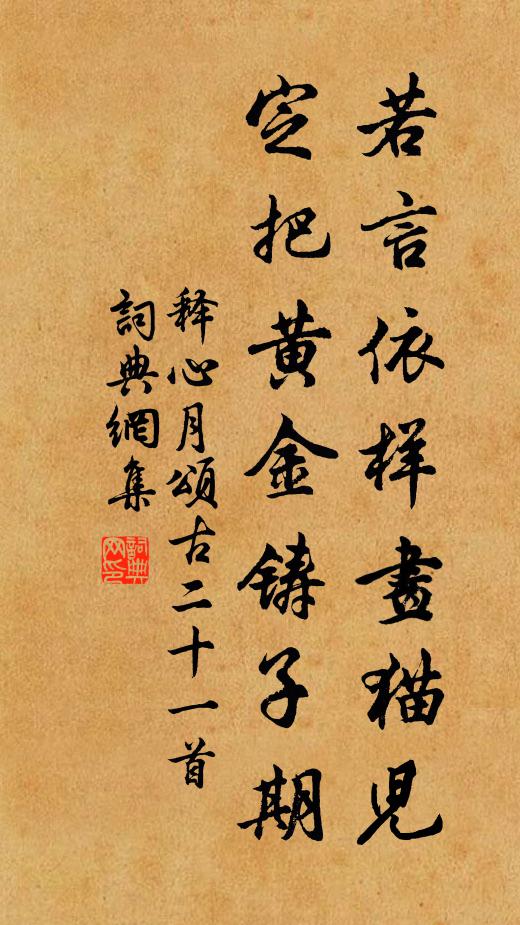 若言依样畫猫児
定把黄金铸子期
释心月頌古二十一首
詞典網集
詞典网印